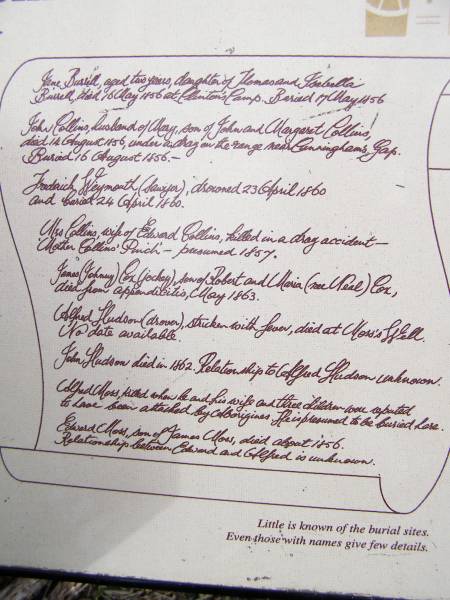 Jane Burrell, aged two years, daughter of Thomas and Isabella
Burrell, died 16 May 1856 at Clinton's Camp. Buried 17 May 1856
John Collins, husband of Mary, son of John and Margaret Collins,
died 14 August 1856, under a drag on the range near Cunningham's Gap.
Buried 16 August 1856.–
Frederick Weymouth (Sawyer), drowned 23 April 1860
and buried 24 April 1860.
Mrs Collins, wife of Edward Collins, killed in a dray accident –
'Mother Collins' Pinch' – presumed 1857.
James (Johnny) Cox (jockey), son of Robert and Maria (nee Neal) Cox,
died from appendicitis, May 1863.
Alfred Hudson (drover), stricken with fever, died at Moss's Well.
No date available.
John Hudson died in 1862. Relationship to Alfred Hudson unknown.
Alfred Moss, killed when he and his wife and three children were reputed
to have been attacked by Aborigines. He is presumed to be buried here.
Edward Moss, son of James Moss, died about 1856.
Relationship between Edward and Alfred is unknown.
Little is known of the burial sites.
Even those with names give few details.